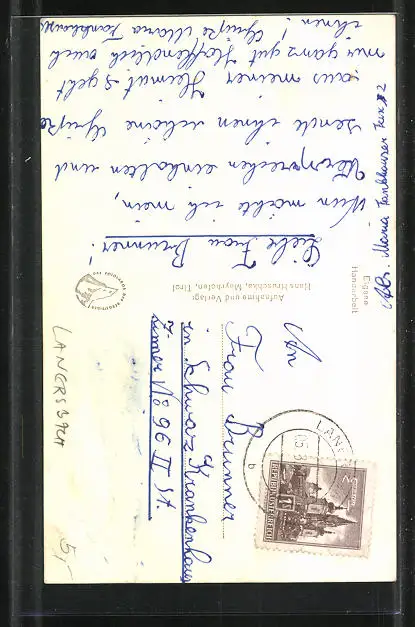 Liebe Frau Brunner!
Nun möchte ich mein,
Versprechen einhalten und
sende ihnen schöne Grüße
aus meiner Heimat. Es geht
mir ganz gut Hoffendlich auch
ihnen! Grüße Maria Fankhauser
Abs. Maria Fankhauser
Eigene
Handarbeit
Aufnahme und Verlag:
Hans Hruschka, Mayrhofen, Tirol
An
Frau Brunner
in Schwaz Krankenhaus
Zimer № 96 II St.
REPUBLIK ÖSTERREICH
LAN
LANERSBACH
5,-